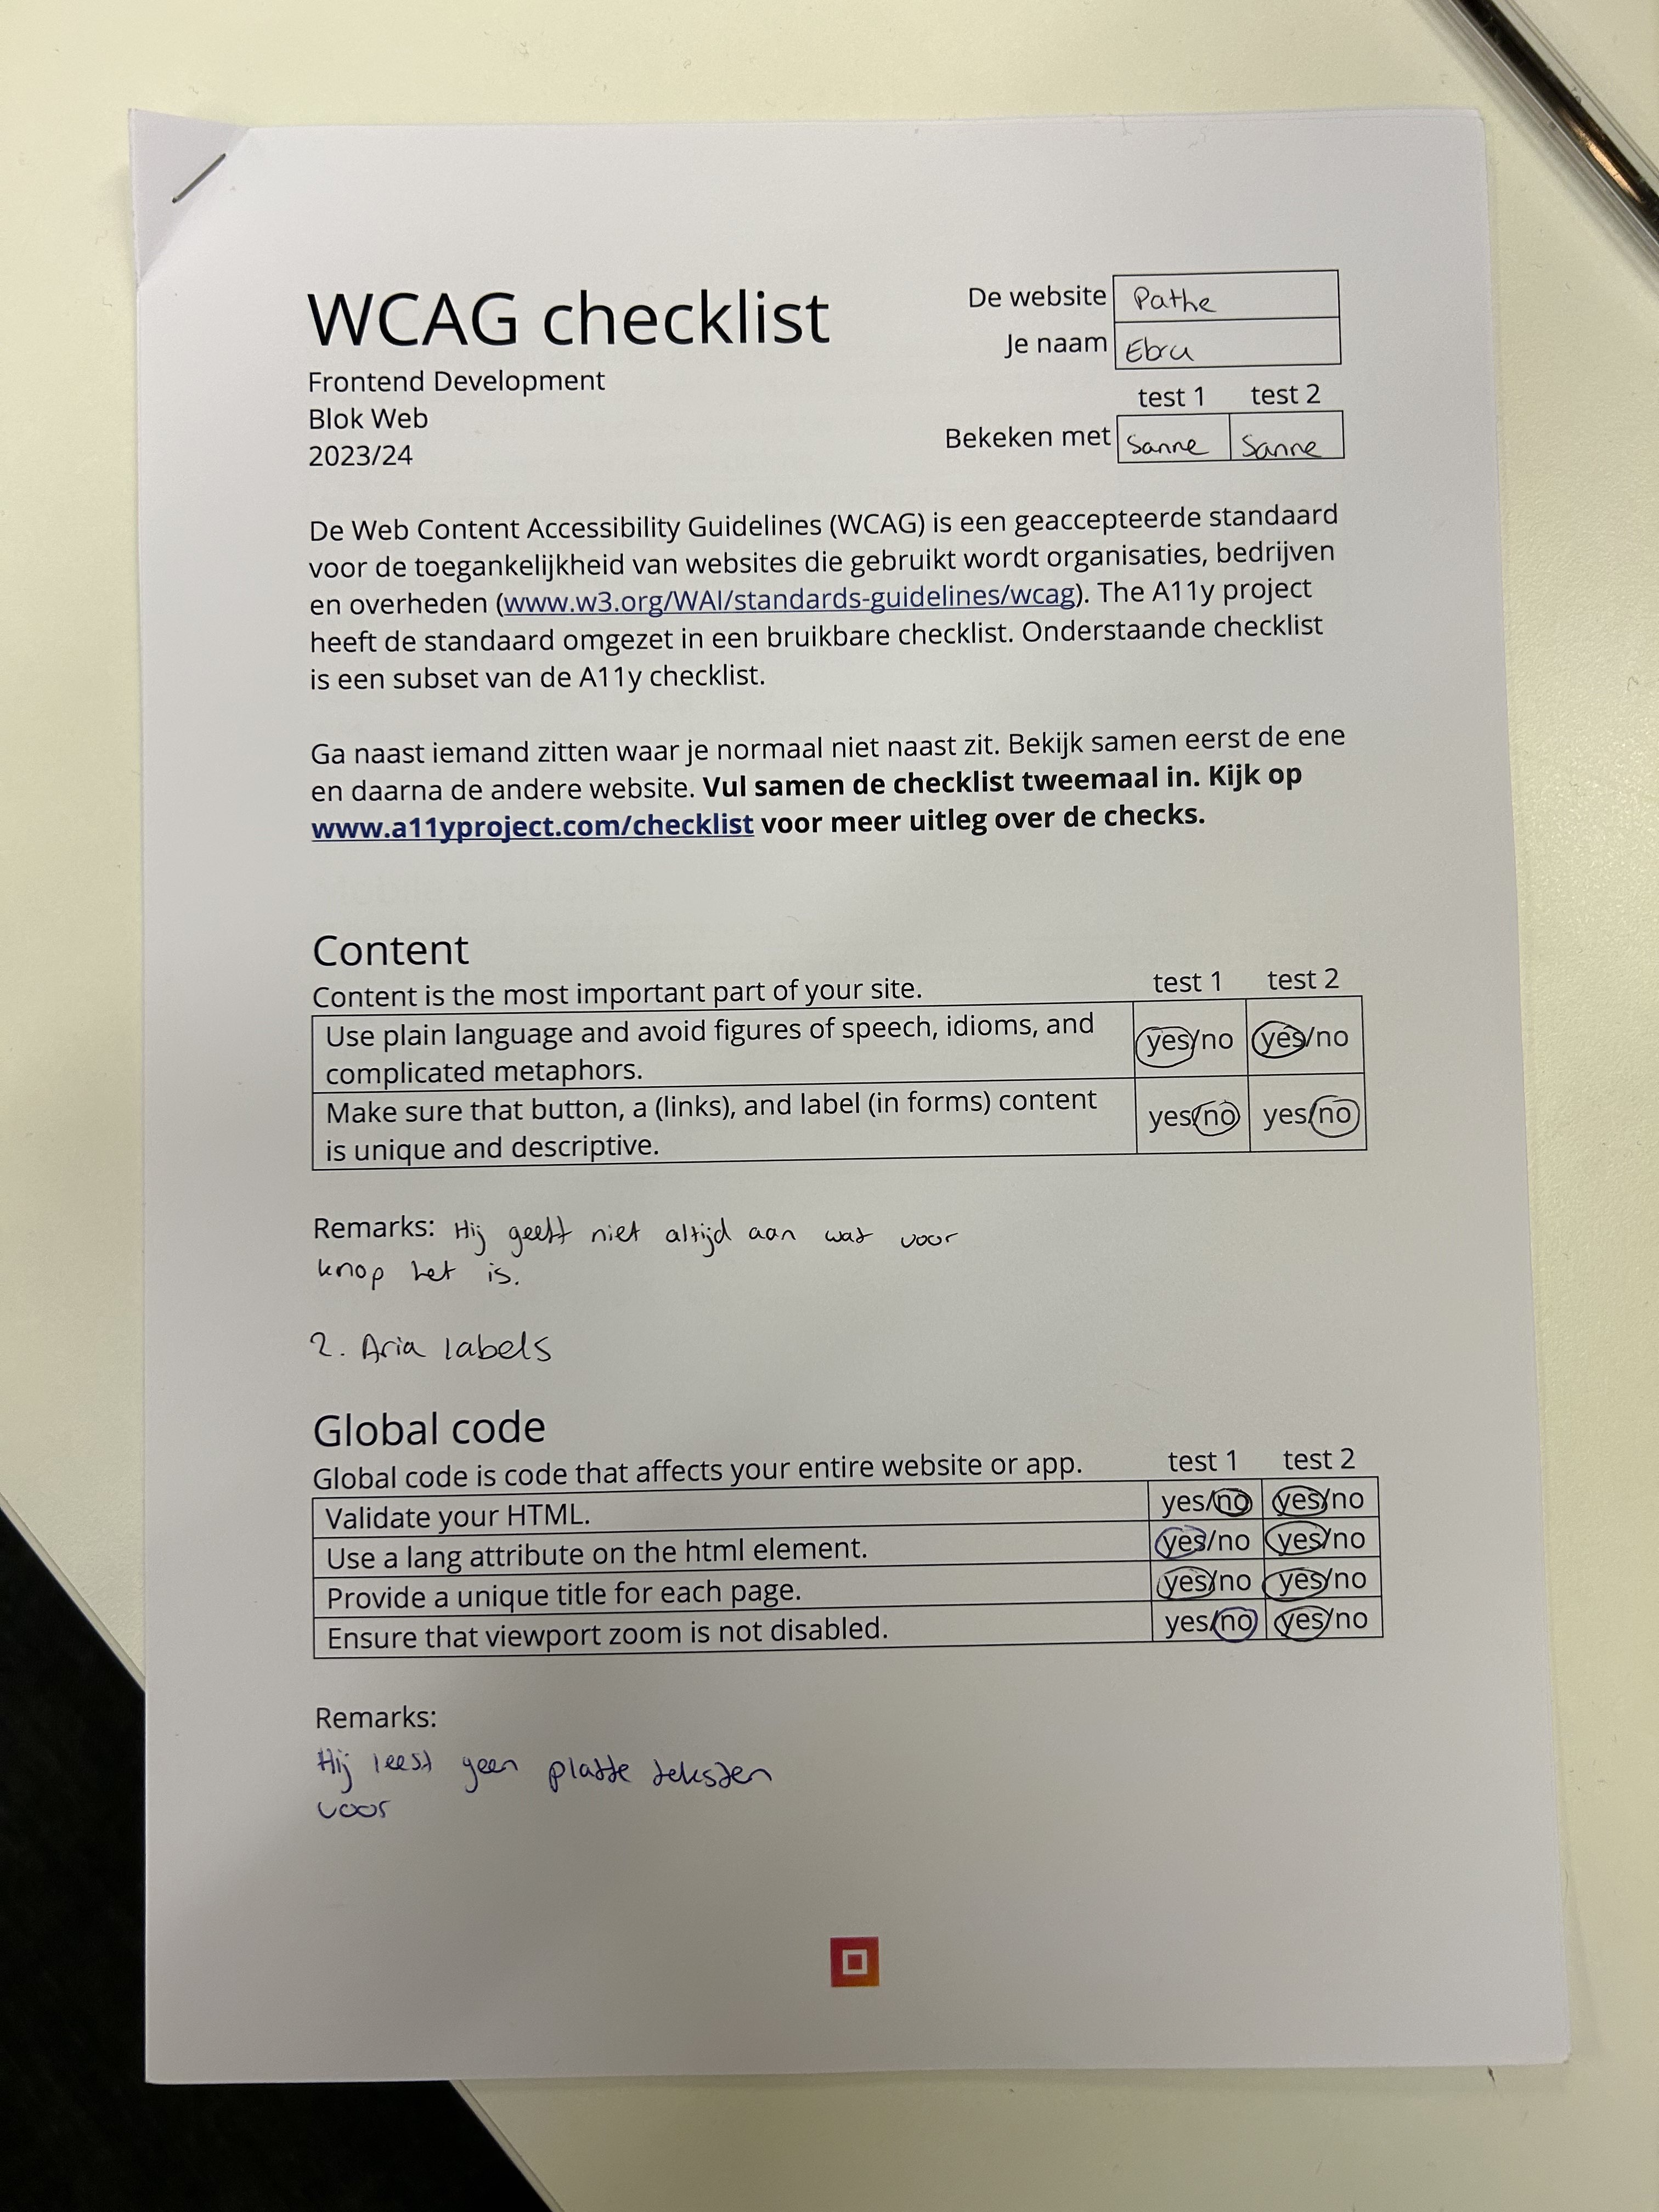 WCAG checklist
Frontend Development
Blok Web
2023/24
De website Pathe
Je naam Ebru
test 1 test 2
Bekeken met Sanne Sanne
De Web Content Accessibility Guidelines (WCAG) is een geaccepteerde standaard
voor de toegankelijkheid van websites die gebruikt wordt organisaties, bedrijven
en overheden (www.w3.org/WAI/standards-guidelines/wcag). The A11y project
heeft de standaard omgezet in een bruikbare checklist. Onderstaande checklist
is een subset van de A11y checklist.
Ga naast iemand zitten waar je normaal niet naast zit. Bekijk samen eerst de ene
en daarna de andere website. Vul samen de checklist tweemaal in. Kijk op
www.a11yproject.com/checklist voor meer uitleg over de checks.
Content
Content is the most important part of your site. test 1 test 2
Use plain language and avoid figures of speech, idioms, and
complicated metaphors. yes/no yes/no
Make sure that button, a (links), and label (in forms) content
is unique and descriptive. yes/no yes/no
Remarks: Hij geeft niet altijd aan wat voor
knop het is.
2. Aria labels
Global code
Global code is code that affects your entire website or app. test 1 test 2
Validate your HTML. yes/no yes/no
Use a lang attribute on the html element. yes/no yes/no
Provide a unique title for each page. yes/no yes/no
Ensure that viewport zoom is not disabled. yes/no yes/no
Remarks:
Hij leest geen platte teksten
voor